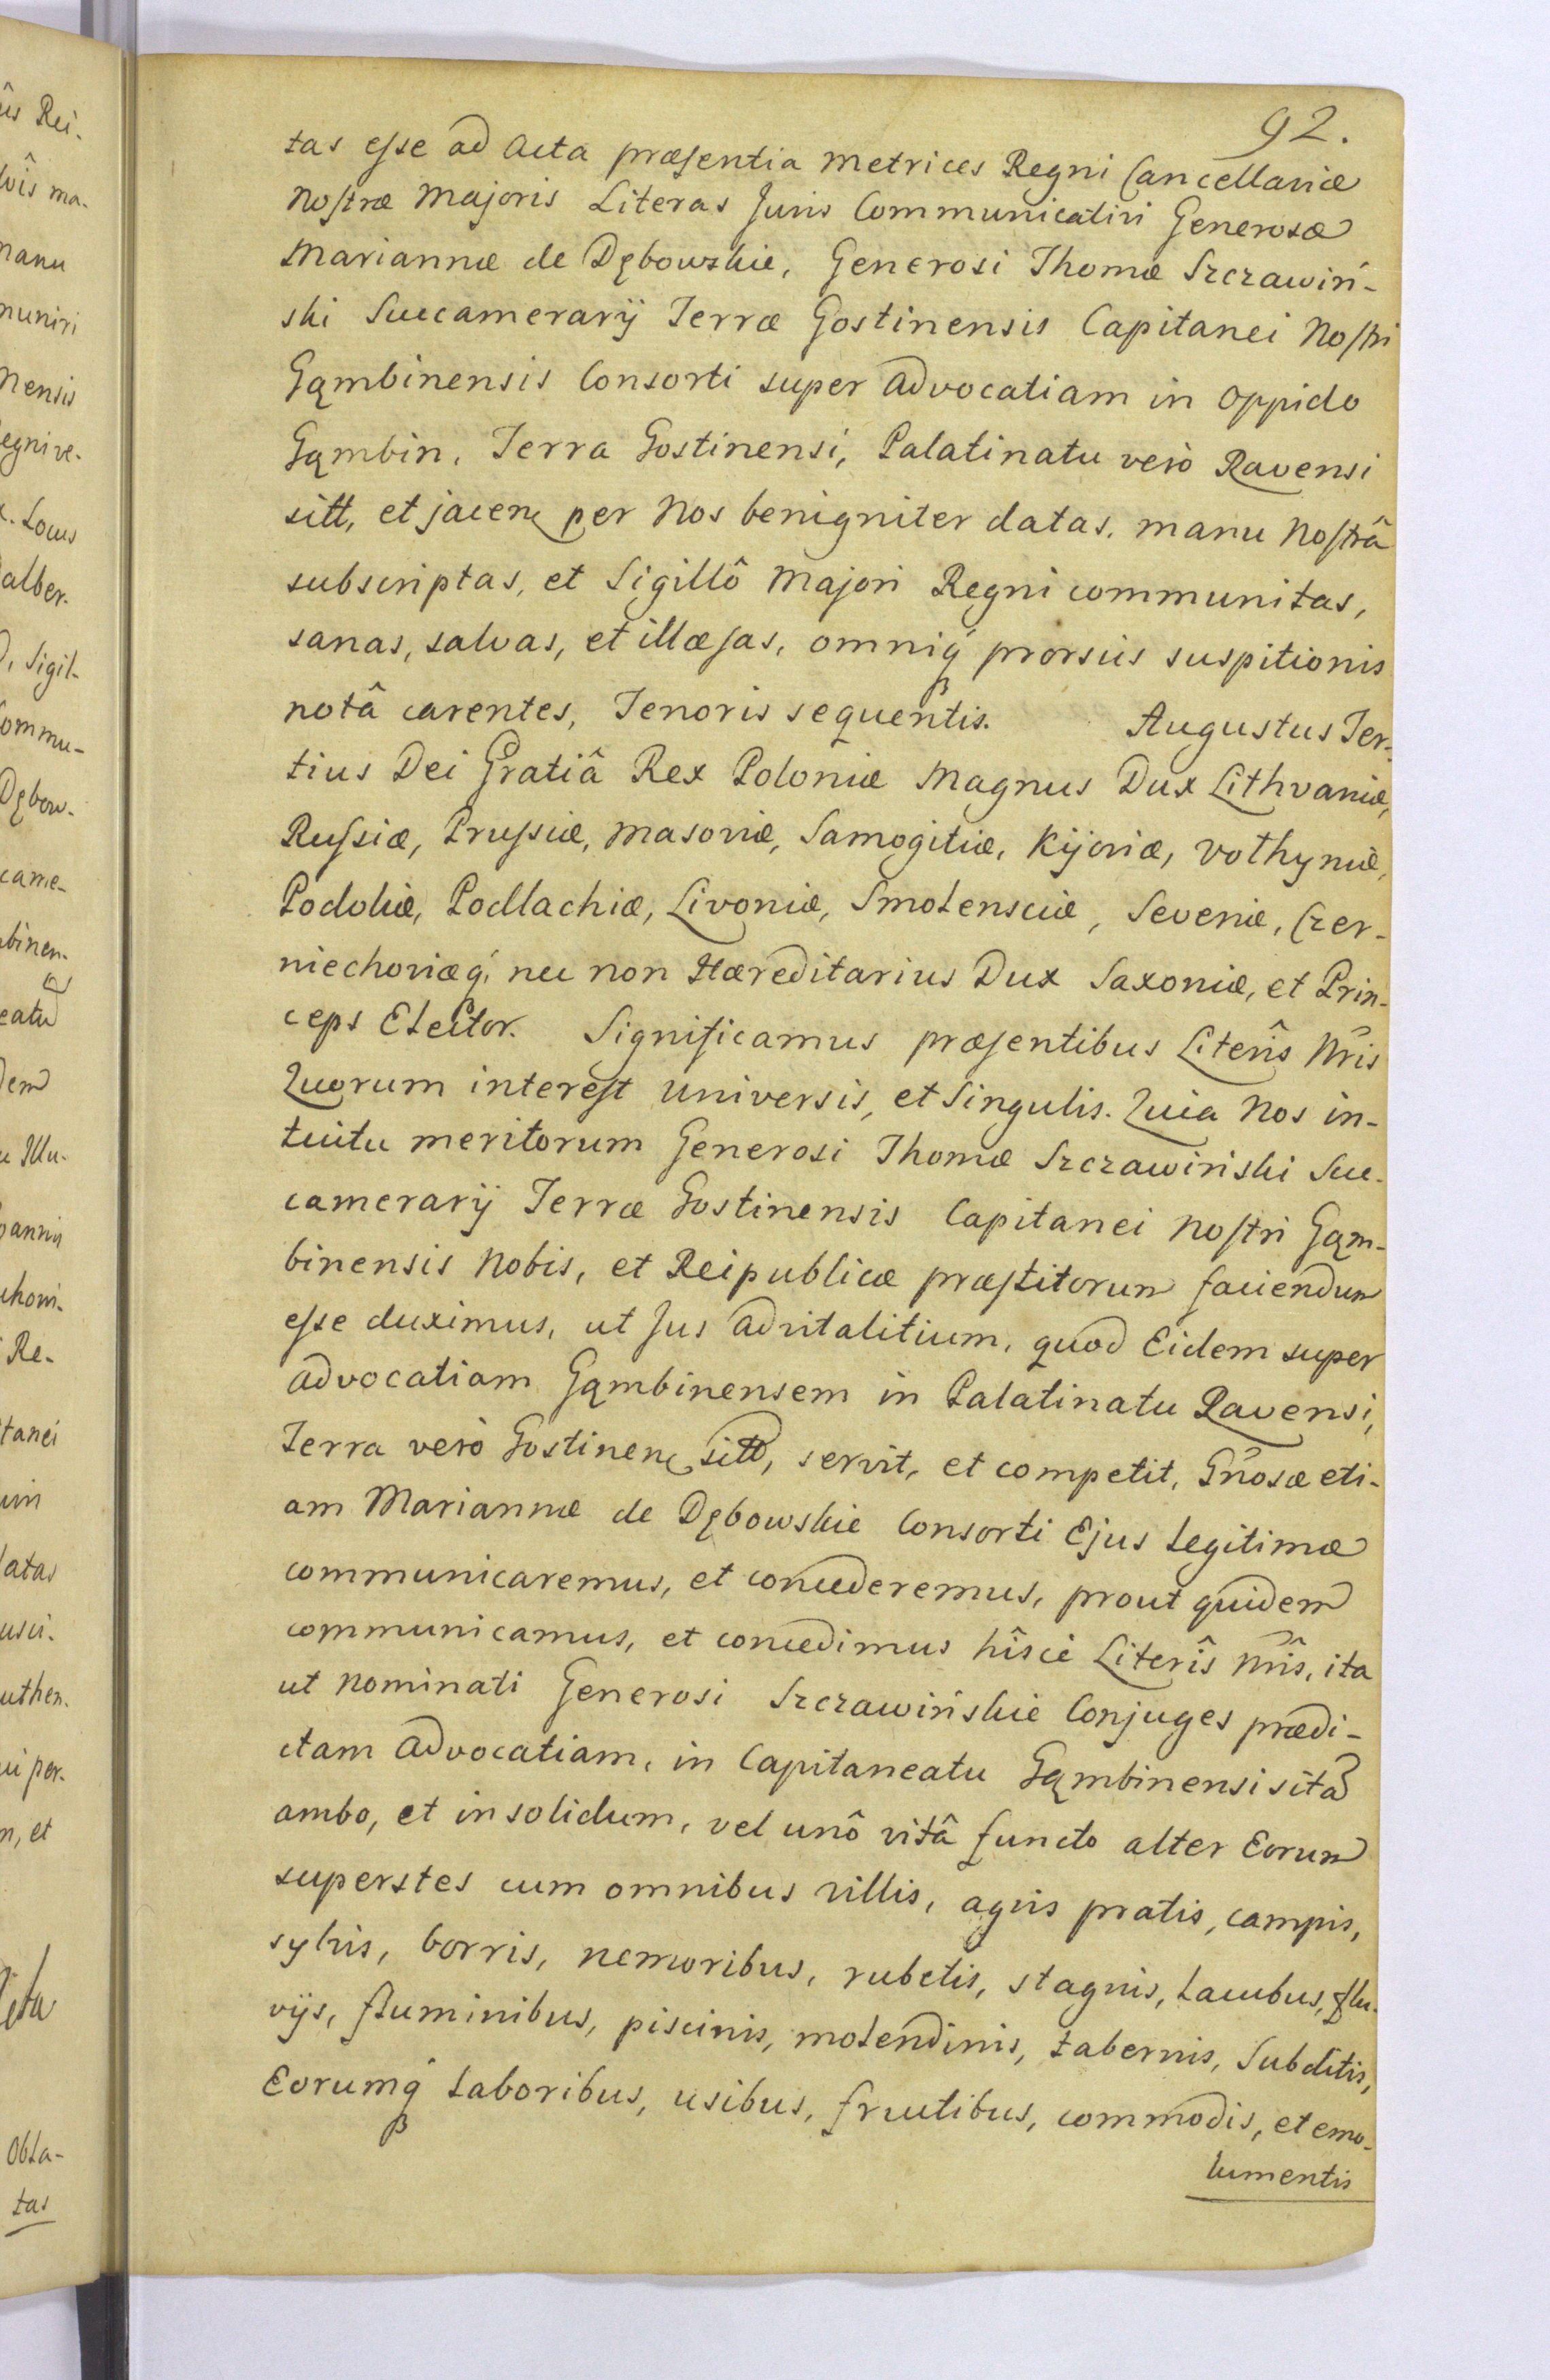 92.
tas esse ad Acta præsentia Metrices Regni Cancellariæ
Nostræ Majoris Literas Juris Communicativi Generosæ
Mariannæ de Dębowskie, Generosi Thomæ Szczawiń-
ski Succamerarij Terræ Gostinensis Capitanei Nostri
Gąmbinensis Consorti super Advocatiam in Oppido
Gąmbin, Terra Gostinensi, Palatinatu verò Ravensi
sitt, et jacen per Nos benigniter datas, manu Nostrâ
subscriptas, et Sigillô Majori Regni communitas,
sanas, salvas, et illæsas, omniq́ prorsus suspitionis
notâ carentes, Tenoris sequentis. Augustus Ter-
tius Dei Gratiâ Rex Poloniæ Magnus Dux Lithvaniæ,
Russiæ, Prussiæ, Masoviæ, Samogitiæ, Kijoviæ, Volhyniæ,
Podoliæ, Podlachiæ, Livoniæ, Smolensciæ, Severiæ, Czer-
niechoviæq́, nec non Hæreditarius Dux Saxoniæ, et Prin-
ceps Elector. Significamus præsentibus Literîs Nr̃is
Quorum interest Universis, et Singulis. Quia Nos in-
tuitu meritorum Generosi Thomæ Szczawiński Suc-
camerarij Terræ Gostinensis Capitanei Nostri Gąm-
binensis Nobis, et Reipublicæ præstitorum faciendum
esse duximus, ut Jus Advitalitium, quod Eidem super
Advocatiam Gąmbinensem in Palatinatu Ravensi,
Terra verò Gostinen sitt, servit, et competit, Gñosæ eti-
am Mariannæ de Dębowskie Consorti Ejus Legitimæ
communicaremus, et concederemus, prout quidem
communicamus, et concedimus hîsce Literîs Nr̃îs, ita
ut Nominati Generosi Szczawińskie Conjuges prædi-
ctam Advocatiam, in Capitaneatu Gąmbinensi sitã
ambo, et in solidum, vel unô vitâ functo alter Eorum
superstes cum omnibus villis, agris pratis, campis,
sylvis, borris, nemoribus, rubetis, stagnis, lacubus, flu-
vijs, fluminibus, piscinis, molendinis, tabernis, Subditis,
Eorumq́ laboribus, usibus, fructibus, commodis, et emo-
lumentis